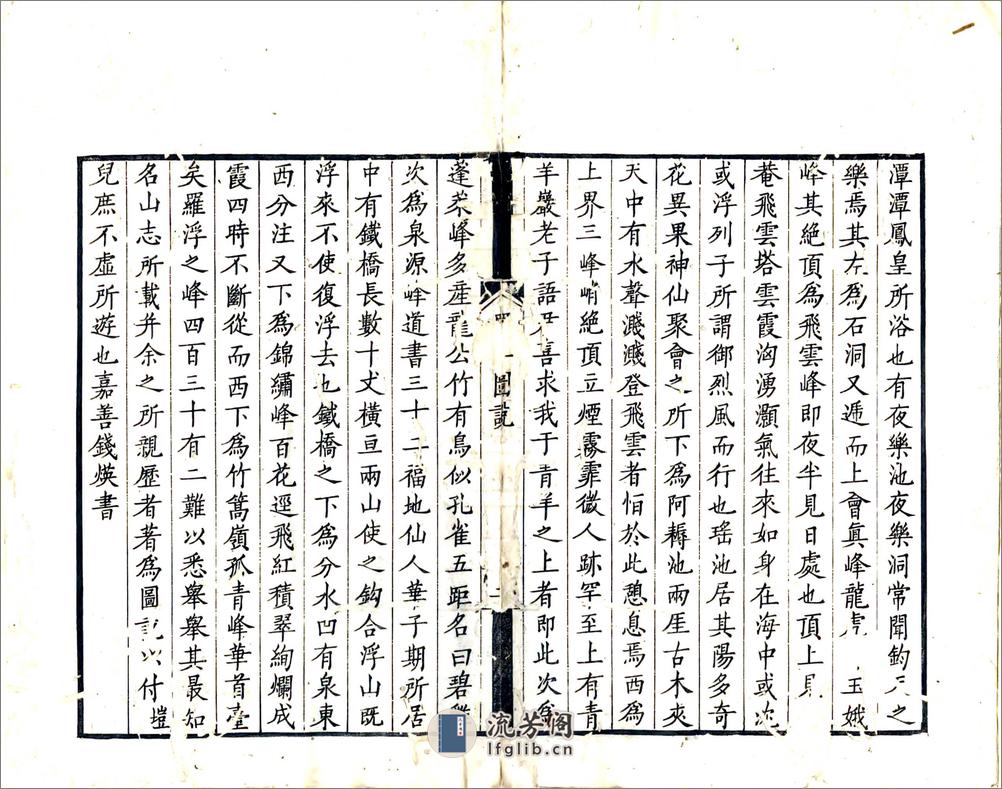 潭潭鳳皇所浴也有夜樂池夜樂洞常聞鈞天之
樂焉其左為石洞又逓而上會真峰龍虎 玉娥
峰其絕頂為飛雲峰即夜半見日處也頂上見
菴飛雲塔雲霞洶湧灝氣往來如身在海中或次
或浮列子所謂御烈風而行也瑤池居其陽多奇
花異果神仙聚會之所下為阿耨池兩厓古木夾
天中有水聲濺濺登飛雲者怕於此憩息焉西為
上界三峰峭絕頂立煙霧霏微人跡罕至上有青
羊巖老子語 喜求我于青羊之上者即此次為
圖說
二
蓬萊峰多產龍公竹有鳥似孔雀五距名曰碧雞
次為泉源峰道書三十二福地仙人華子期所居
中有鐵橋長數十丈橫亘兩山使之鈎合浮山既
浮來不使復浮去也鐵橋之下為分水凹有泉東
西分注又下為錦繡峰百花逕飛紅積翠絢爛成
霞四時不斷從而西下為竹篙嶺孤青峰華首臺
矣羅浮之峰四百三十有二難以悉舉舉其最知
名山志所載并余之所親歷者著為圖記以付塏
兒庶不虛所遊也嘉善錢煐書
流芳阁
lfglib.cn